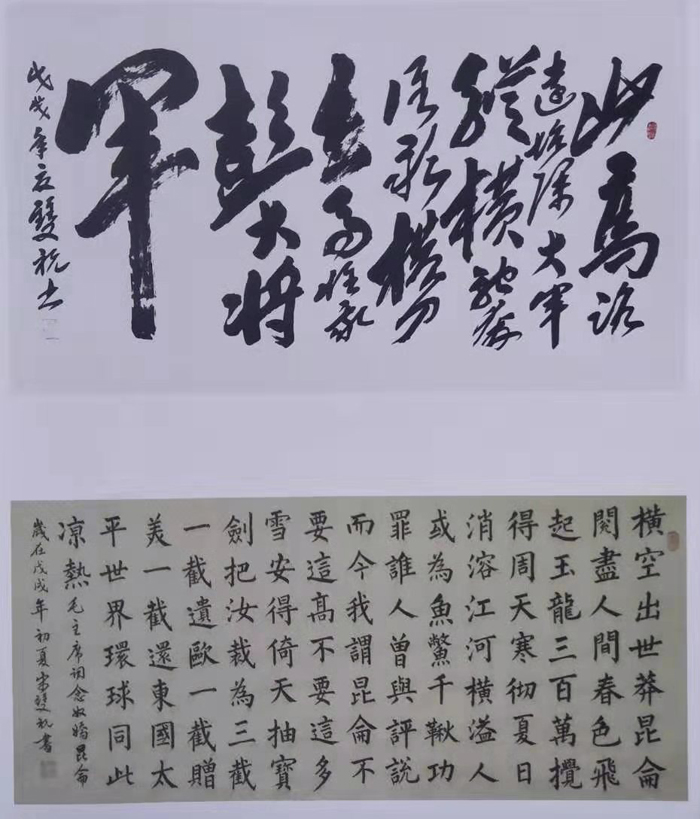 山高路
遠坑深大軍
縱橫馳奔
谁敢横刀
立马惟我
彭大将
軍
戊戌年夏雙
橫空出世莽昆侖
閱盡人間春色飛
起玉龍三百萬攪
得周天寒彻夏日
消溶江河橫溢人
或為魚鱉千鞦功
罪誰人曾與評說
而今我謂昆侖不
要這高不要這多
雪安得倚天抽寶
劍把汝裁為三截
一截遺歐一截贈
美一截還東國太
平世界環球同此
凉熱毛主席詞念奴嬌昆侖
歲在戊戌年初夏常雙書